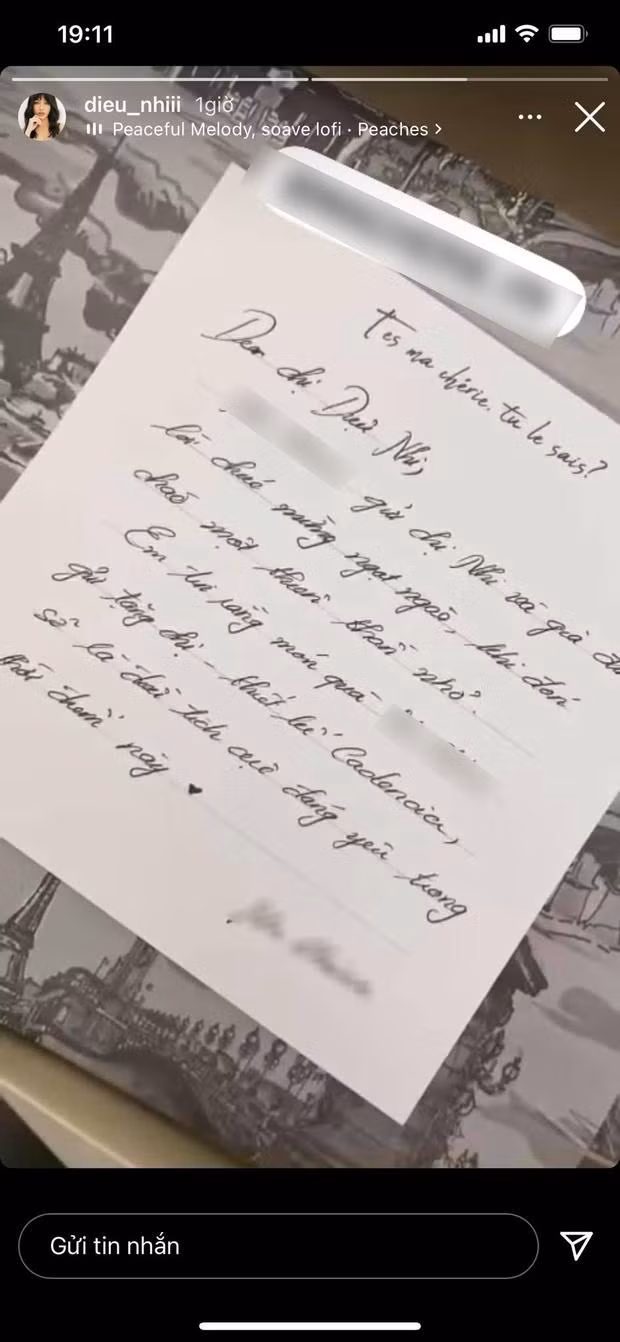 19:11
dieu_nhiii 1giờ
Peaceful Melody, soave lofi · Peaches >
T'es ma chérie. tu le sais?
Dear chị Diệu Nhi,
gửi chị Nhi và gia đ
lời chúc mừng ngọt ngào, khi đón
chào một thiên thần nhỏ.
Em tin rằng món quà
gửi tặng chị - thiết kế Cadencia,
sẽ là dấu tích cực đáng yêu trong
thời điểm này ♥
Gửi tin nhắn